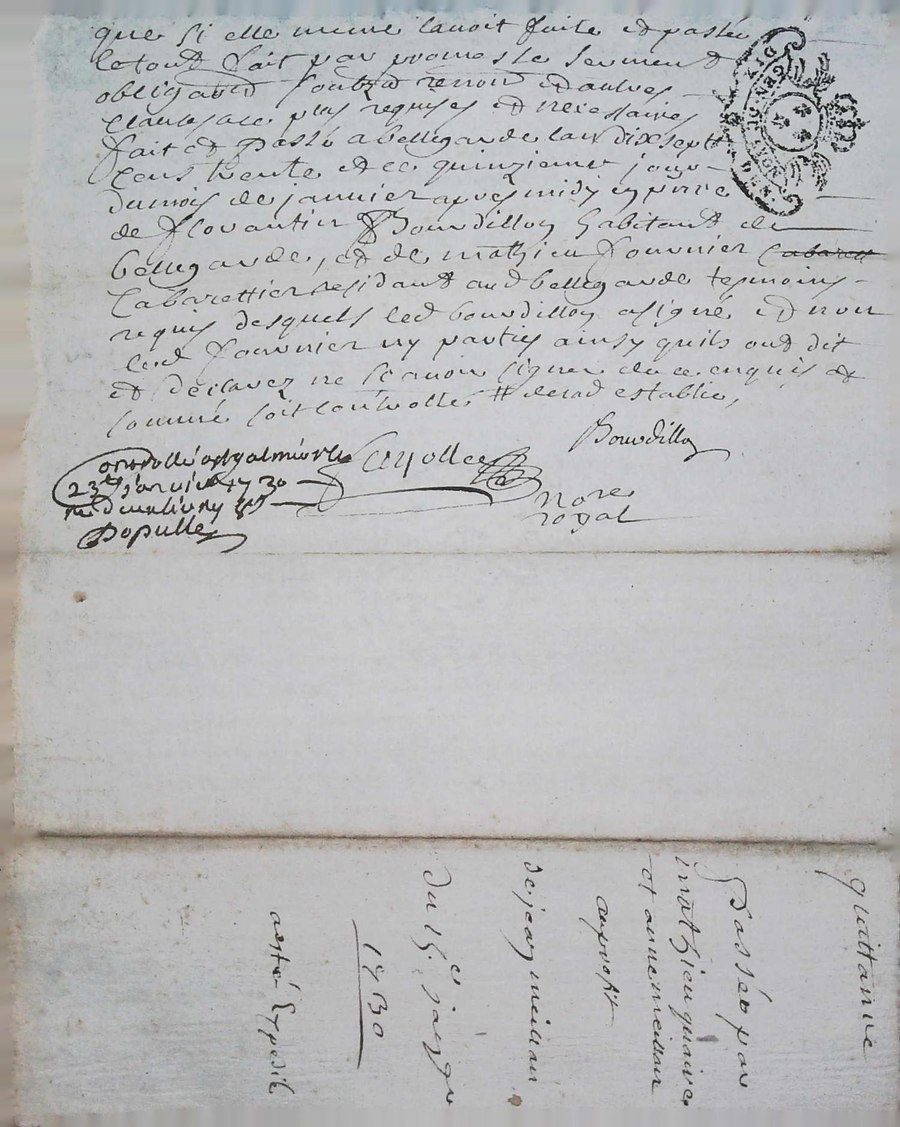 que si elle meme lavoit faite et passée
letout fait par promesse serment
obligaōn soubzōn renon et autres
clauses ace plus requises et necessaires
fait et Passé abellegarde lan dixsept
cens trente et ce quinzieme jour
dumois de janvier apres midy en pnce
de florantin Bourdillon habitant de
bellegarde, et de mathieu fournier
Cabarettier residant aud bellegarde tesmoins
requis desquels led bourdillon a signé et non
led fournier ny parties ainsy quils ont dit
et declarez ne scavoir signer de ce enquis et
sommé soit controllé # delad establie,
Bourdillon
controllé a stgalmier le
23e janvier 1730
Populle
Cayolle
nore
royal
quittance
Passée par
mathieu
et anne meilland
auprofit
de jean meilland
du 15e janvr
1730